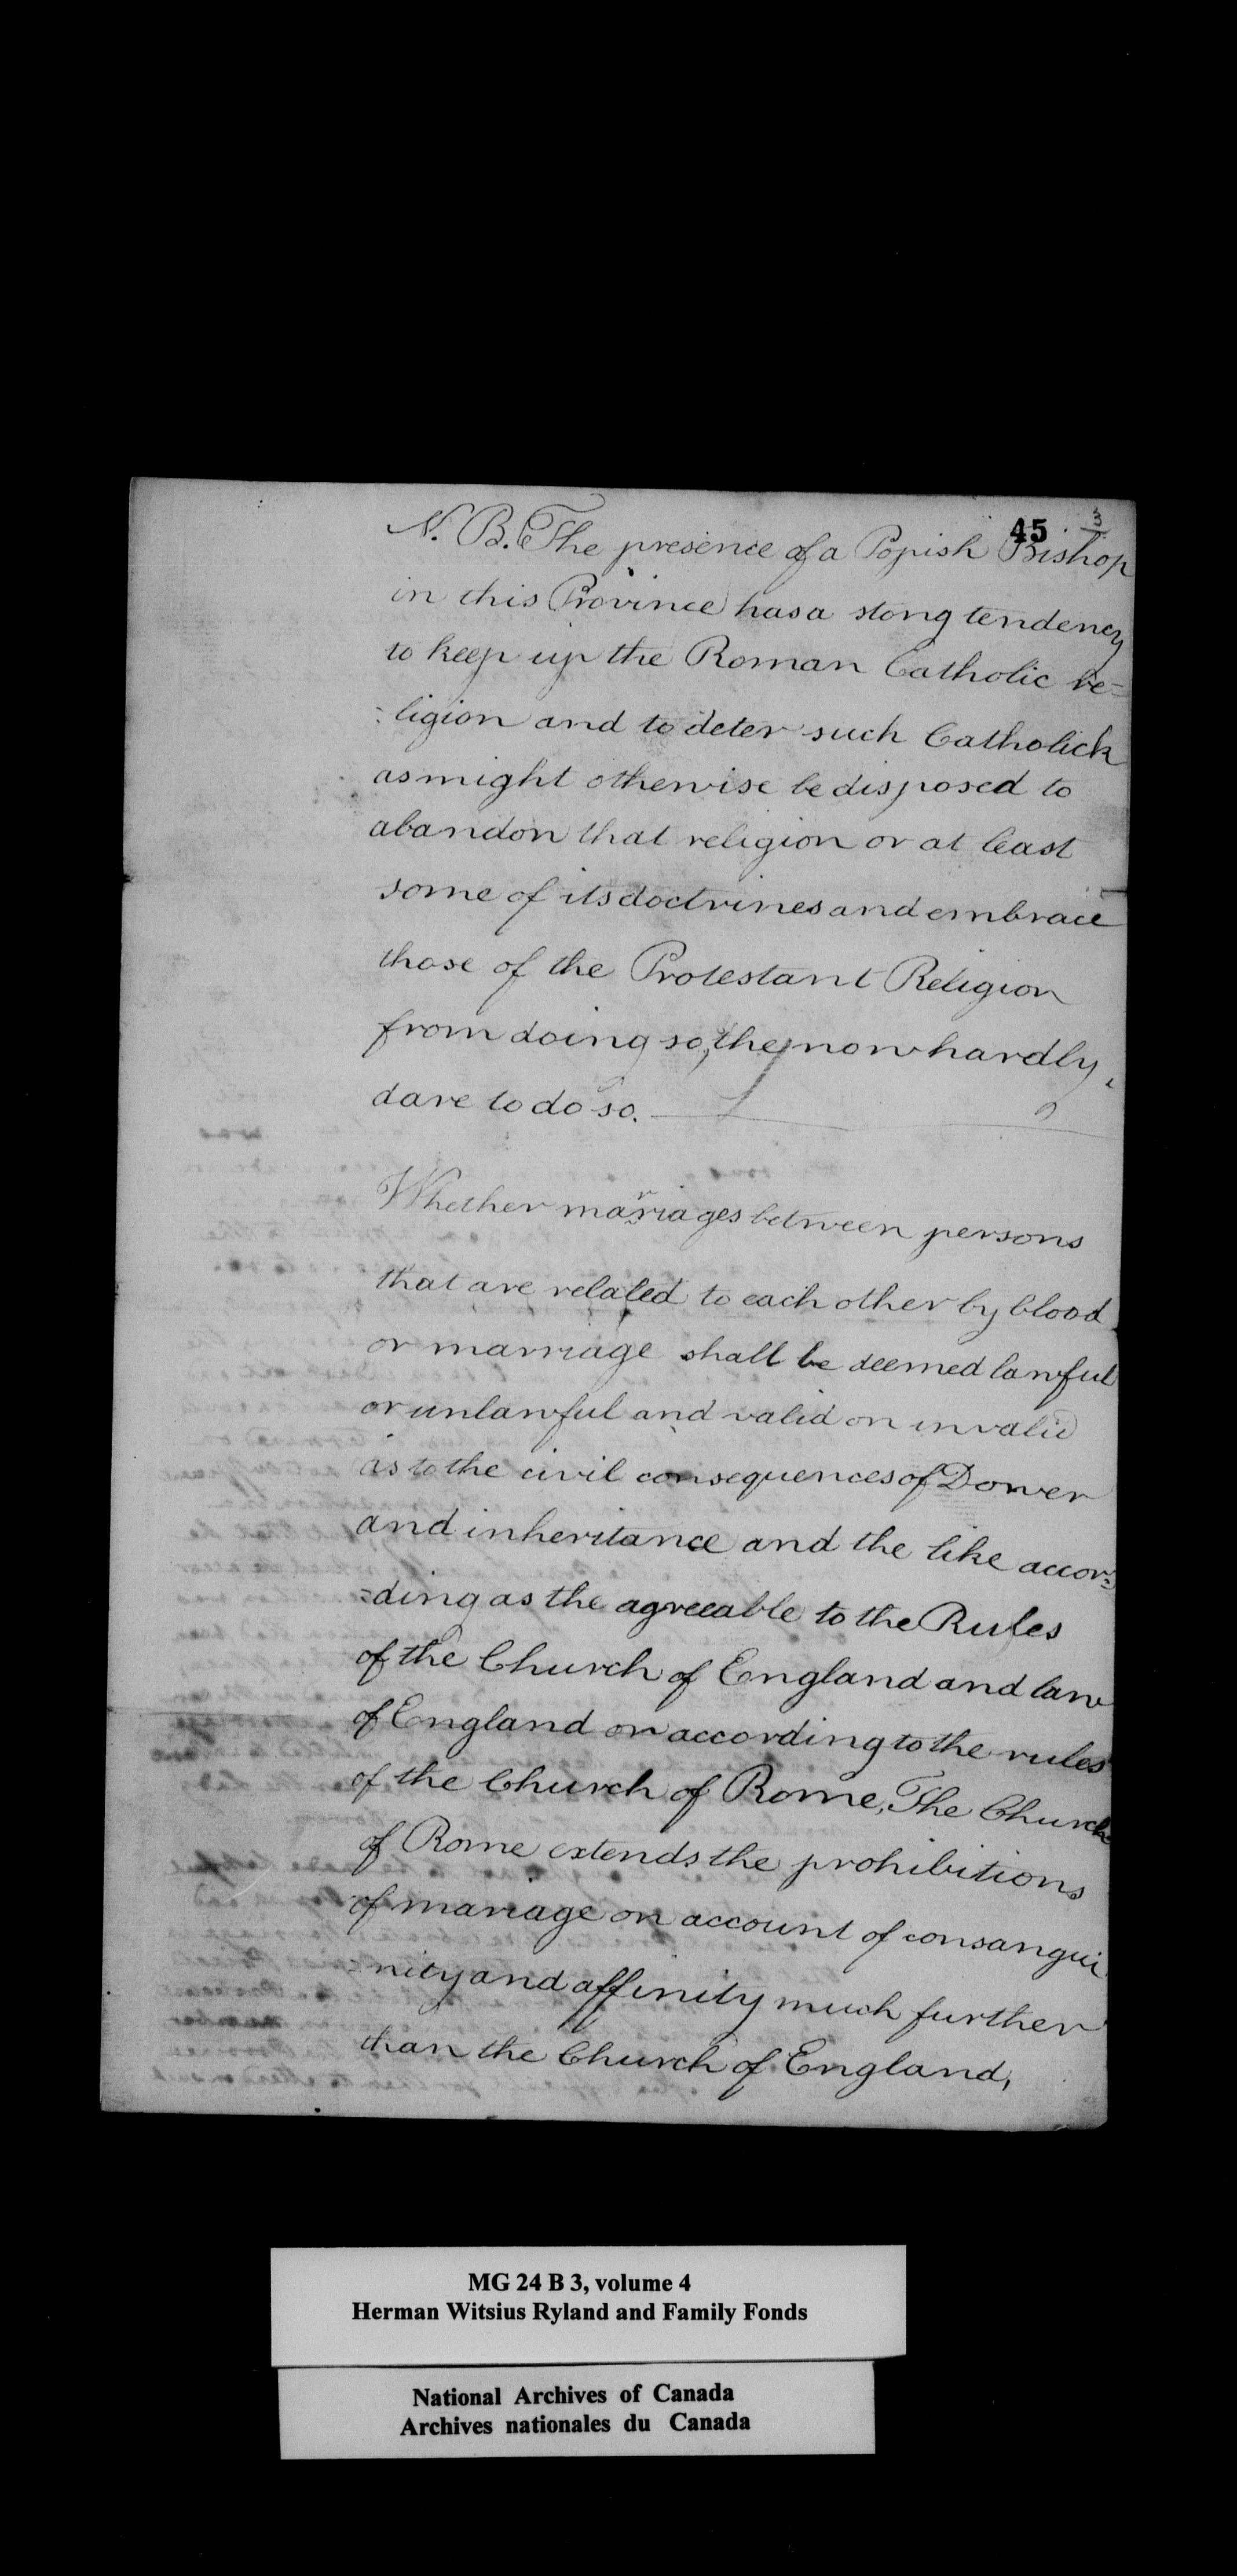 45 3
N. B. The presence of a Popish Bishop
in this Province has a stong tendency
to keep up the Roman Catholic re=
=ligion and to deter such Catholick
as might otherwise be disposed to
abandon that religion or at least
some of its doctrines and embrace
those of the Protestant Religion
from doing so, they now hardly
dare to do so.
Whether marriages between persons
that are related to each other by blood
or marriage shall be deemed lawful
or unlawful and valid or invalid
as to the civil consequences of Dower
and inheritance and the like accor=
=ding as the agreeable to the Rules
of the Church of England and law
of England or according to the rules
of the Church of Rome, The Church
of Rome extends the prohibitions
of mariage on account of consangui
=nity and affinity much further
than the Church of England,
MG 24 B 3, volume 4
Herman Witsius Ryland and Family Fonds
National Archives of Canada
Archives nationales du Canada